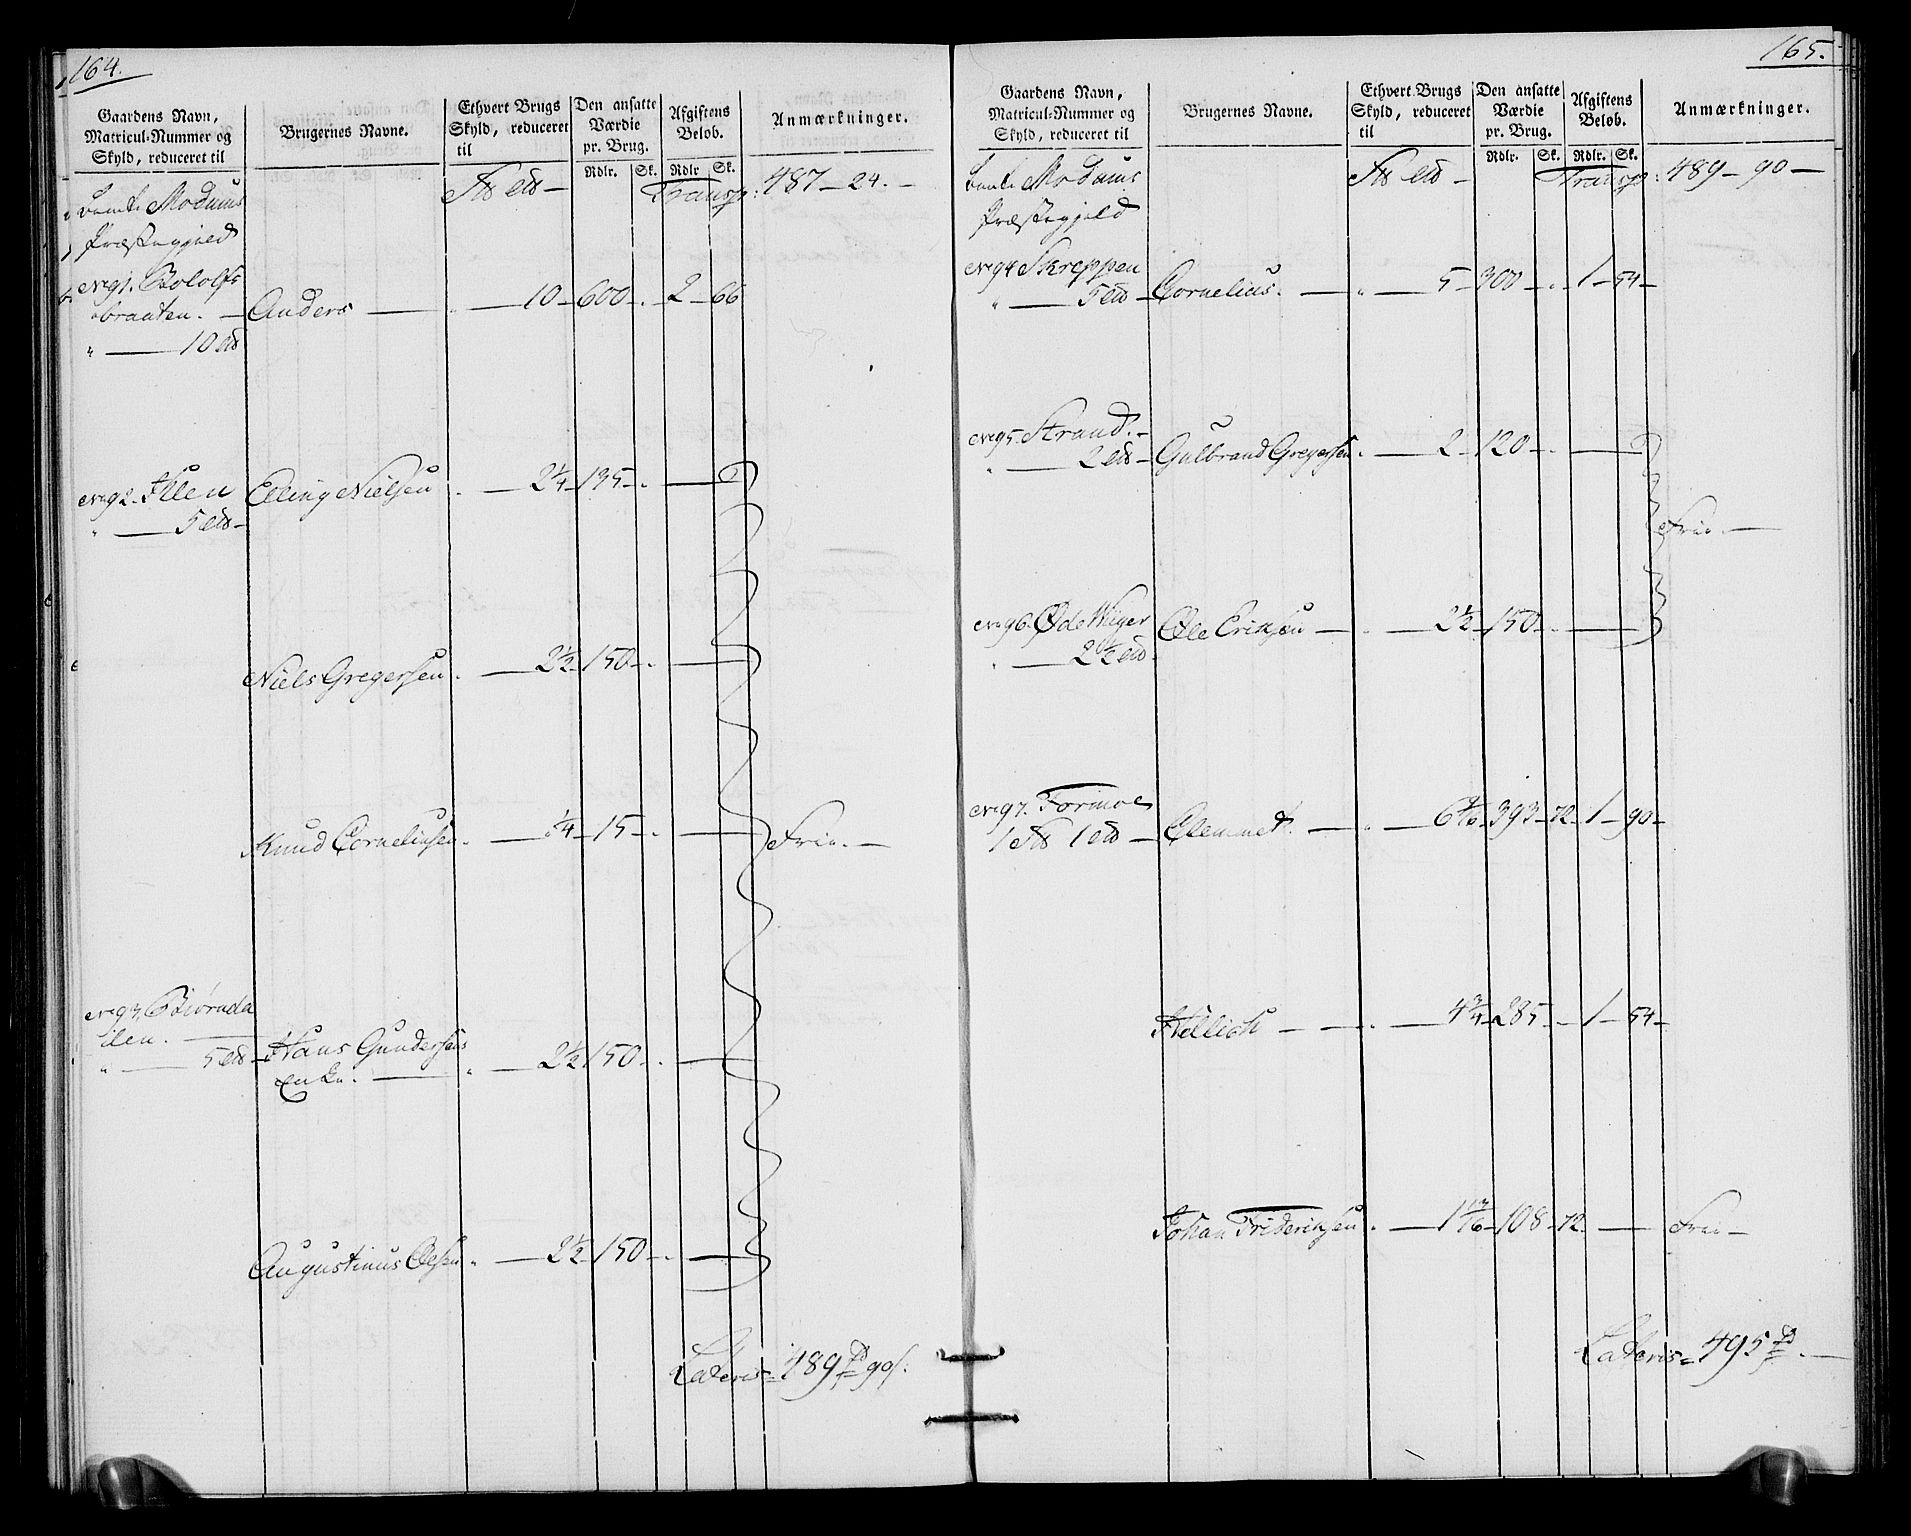 164.
Gaardens Navn, Matricul-Nummer og Skyld, reduceret til
Brugernes Navne.
Ethvert Brugs Skyld, reduceret til
Den ansatte Værdie pr. Brug.
Afgiftens Beløb.
Anmærkninger.
Rdlr. Sk. Rdlr Sk.
Modums Transp: 487 - 24. -
Præstegjeld
No 91. Bololfs
braaten. - Anders - 10 - 600 - 2 - 66
" - 10
No 92. Illen Elling Nielsen - 2¼ - 135 -
" - 5
Niels Gregersen. - 2½ - 150 -
Knud Corneliusen. - ¼ - 15 - Frie. -
No 93. Biørnda
Hans Gundersens
" - 5
Enke. - 2½ - 150 -
Augustinus Olsen - 2½ - 150 -
Lateris = 489 90
165.
Gaardens Navn, Matricul-Nummer og Skyld, reduceret til
Brugernes Navne.
Ethvert Brugs Skyld, reduceret til
Den ansatte Værdie pr. Brug.
Afgiftens Beløb.
Anmærkninger.
Rdlr. Sk. Rdlr. Sk.
Modums Transp: 489 - 90 -
Præstegjeld
No 94 Skreppen
" - 5 Cornelius. - 5 - 300 - 1 - 54 -
No 95. Strand. -
" - 2 Gulbrand Gregersen. - 2 - 120 -
Frie. -
No 96. Øde Wiiger Ole Eriksen - 2½ - 150 -
- 2½
No 97. Formoe
1 1 - Clemmet. - 6 9/16 - 393 - 72 - 1 - 90 -
Hellich - 4¾ - 285 - 1 - 54 -
Johan Frideriksen. - 1 13/16 - 108 - 72 - Frie -
Lateris = 495